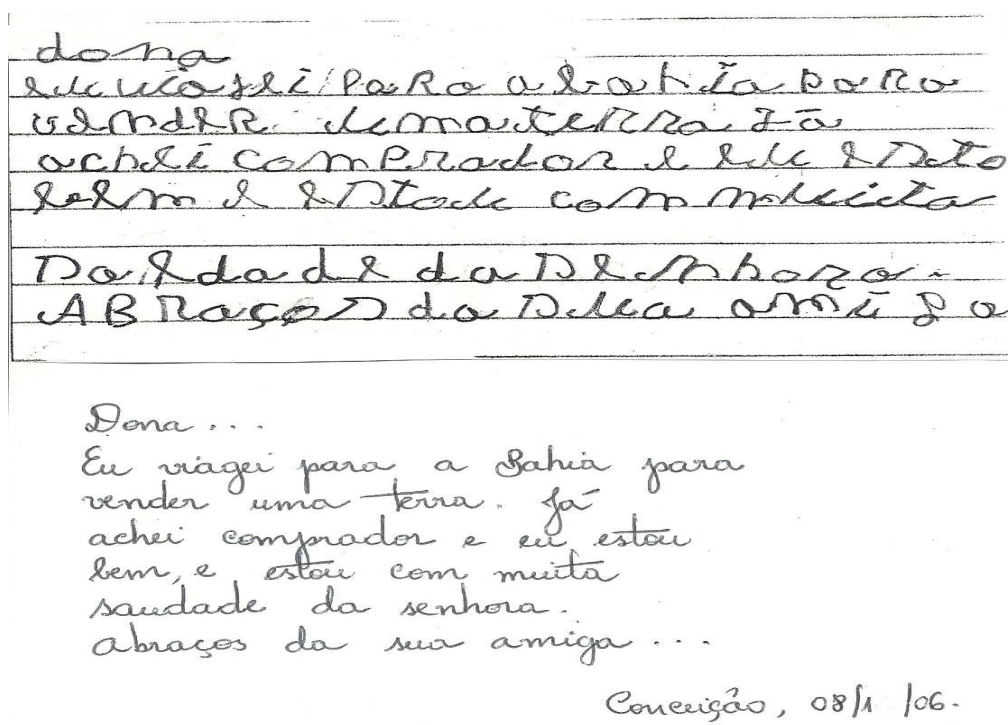 dona
eu viagei para a bahia para
vender uma terra Já
achei comprador e eu esto
bem e estou com muita
saldade da senhora.
ABRaços da sua amiga
Dona ...
Eu viagei para a Bahia para
vender uma terra. Já
achei comprador e eu estou
bem, e estou com muita
saudade da senhora.
abraços da sua amiga ...
Conceição, 08/1 /06.